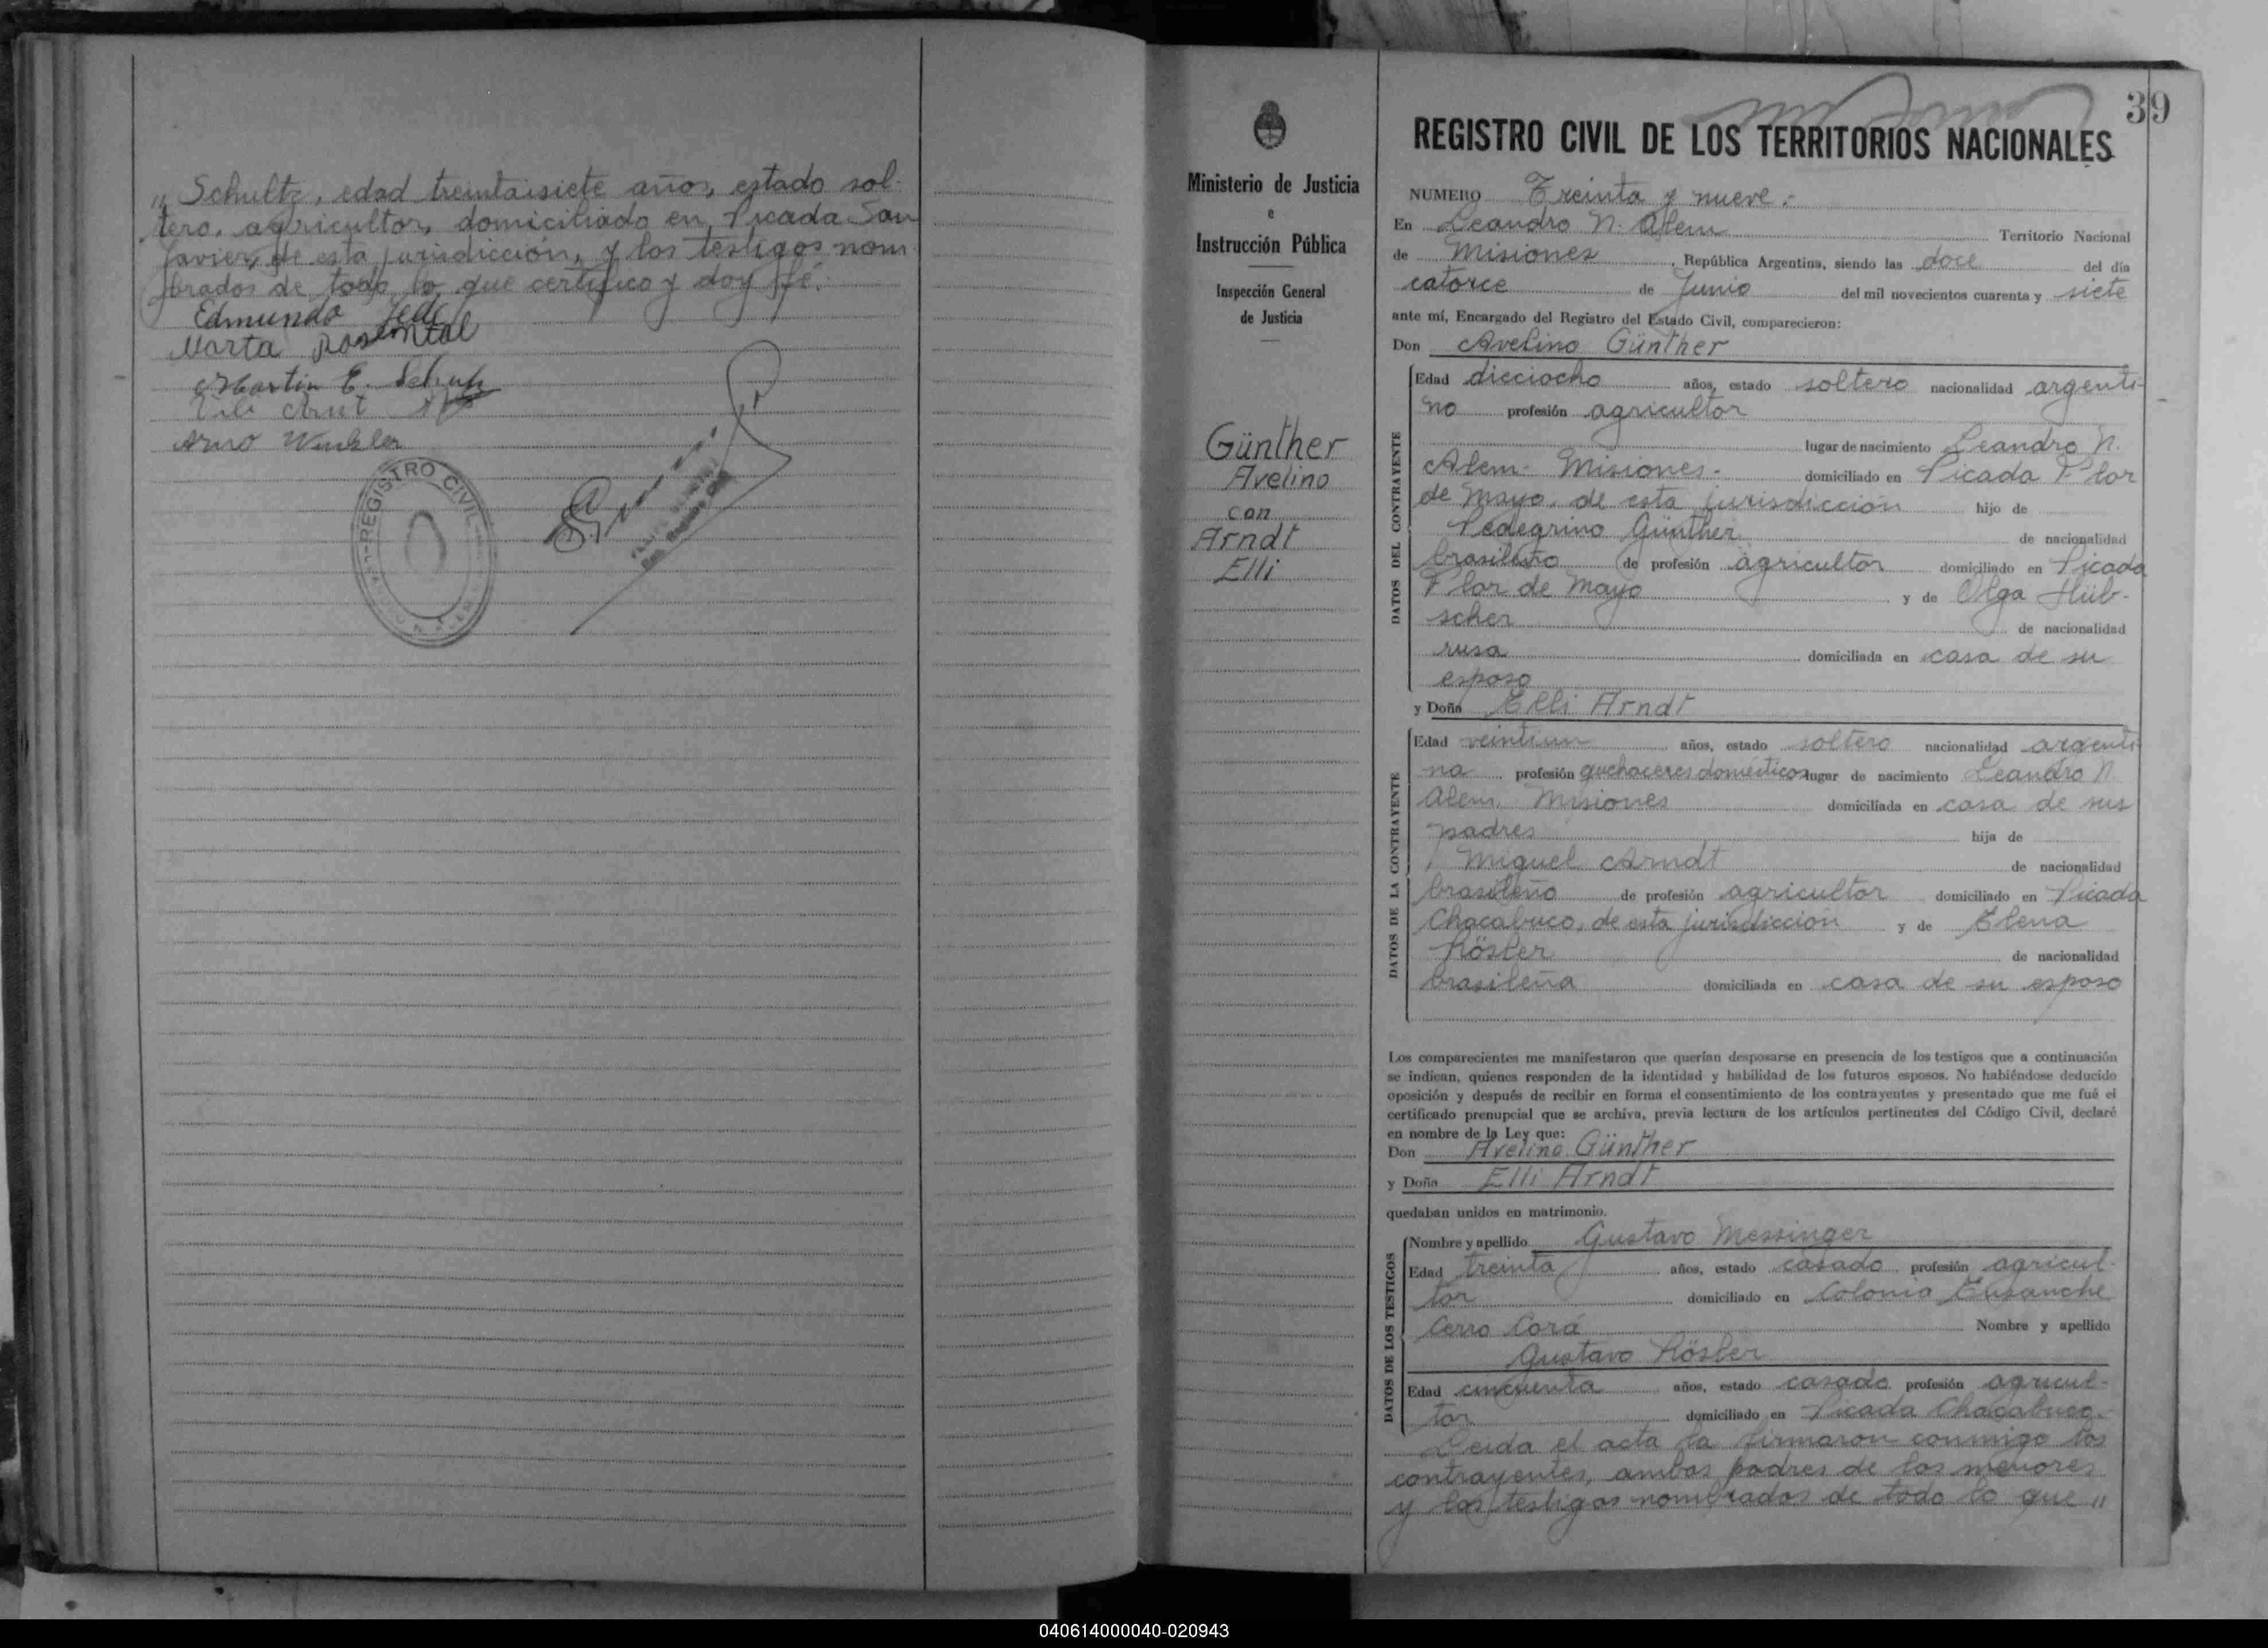 " Schultz, edad treintaisiete años, estado sol-
tero, agricultor, domiciliado en Picada San
Javier, de esta jurisdicción, y los testigos nom
brados de todo lo que certifico y doy fé.
Edmundo
Marta Rosental
Martin E. Schulz
Arno Winkler
REGISTRO CIVIL
LEANDRO N. ALEM
Ministerio de Justicia
e
Instrucción Pública
Inspección General
de Justicia
Günther
Avelino
con
Arndt
Elli
39
REGISTRO CIVIL DE LOS TERRITORIOS NACIONALES
NUMERO Treinta y nueve.-
En Leandro N. Alem Territorio Nacional
de Misiones, República Argentina, siendo las doce del día
catorce de Junio del mil novecientos cuarenta y siete
ante mí, Encargado del Registro del Estado Civil, comparecieron:
Don Avelino Günther
DATOS DEL CONTRAYENTE
Edad dieciocho años, estado soltero nacionalidad argenti-
no profesión agricultor
lugar de nacimiento Leandro N.
Alem- Misiones.- domiciliado en Picada Flor
de Mayo, de esta jurisdicción hijo de
Pedegrino Günther de nacionalidad
brasileño de profesión agricultor domiciliado en Picada
Flor de Mayo y de Olga Hüb-
scher de nacionalidad
rusa domiciliada en casa de su
esposo
y Doña Elli Arndt
DATOS DE LA CONTRAYENTE
Edad veintiun años, estado soltero nacionalidad argenti-
na profesión quehaceres domésticos lugar de nacimiento Leandro N.
Alem, Misiones domiciliada en casa de sus
padres hija de
Miguel Arndt de nacionalidad
brasileño de profesión agricultor domiciliado en Picada
Chacabuco, de esta jurisdicción y de Elena
Kösler de nacionalidad
brasileña domiciliada en casa de su esposo
Los comparecientes me manifestaron que querían desposarse en presencia de los testigos que a continuación
se indican, quienes responden de la identidad y habilidad de los futuros esposos. No habiéndose deducido
oposición y después de recibir en forma el consentimiento de los contrayentes y presentado que me fué el
certificado prenupcial que se archiva, previa lectura de los artículos pertinentes del Código Civil, declaré
en nombre de la Ley que:
Don Avelino Günther
y Doña Elli Arndt
quedaban unidos en matrimonio.
DATOS DE LOS TESTIGOS
Nombre y apellido Gustavo Messinger
Edad treinta años, estado casado profesión agricul-
tor domiciliado en Colonia Ensanche
Cerro Corá Nombre y apellido
Gustavo Kösler
Edad cincuenta años, estado casado profesión agricul-
tor domiciliado en Picada Chacabuco.-
Leida el acta la firmaron conmigo los
contrayentes, ambos padres de los menores
y los testigos nombrados de todo lo que "
040614000040-020943